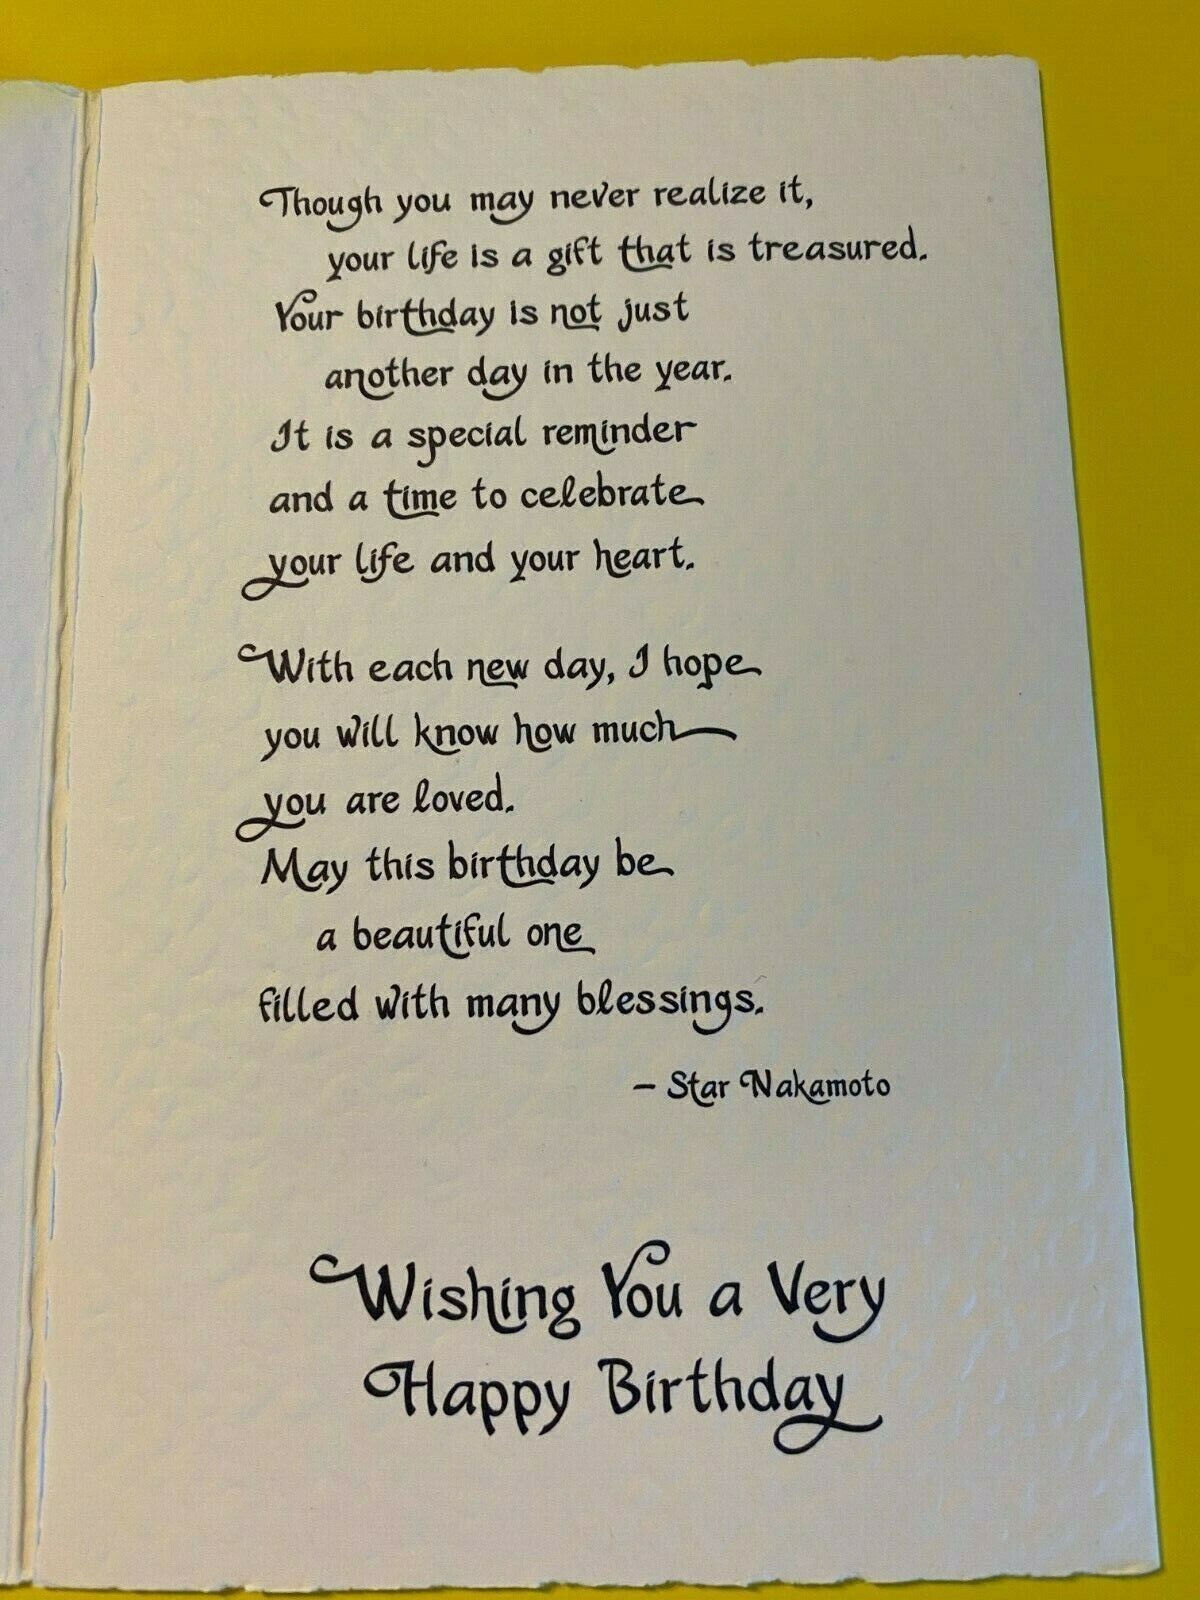 Though you may never realize it,
your life is a gift that is treasured.
Your birthday is not just
another day in the year.
It is a special reminder
and a time to celebrate
your life and your heart.
With each new day, I hope
you will know how much
you are loved.
May this birthday be
a beautiful one
filled with many blessings.
– Star Nakamoto
Wishing You a Very
Happy Birthday